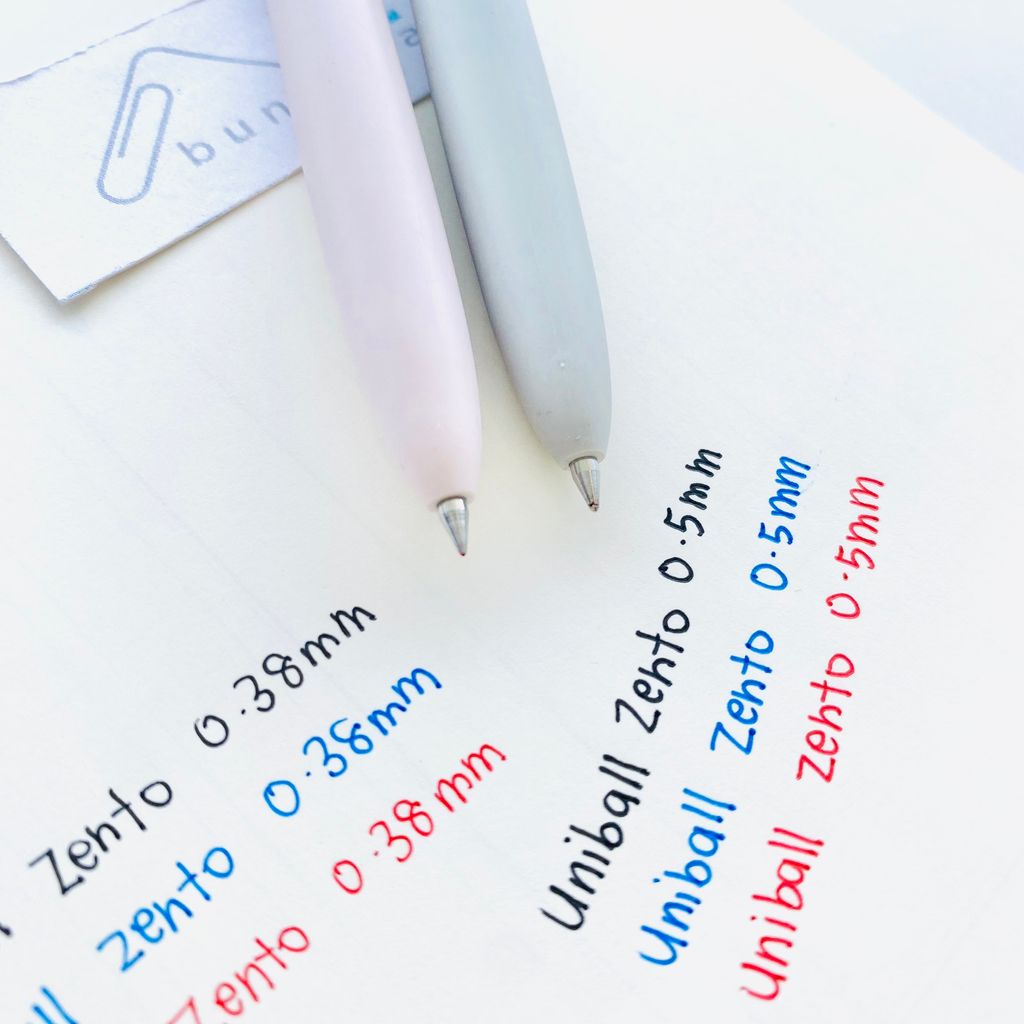 bun
Zento 0.38mm
Zento 0.38mm
Zento 0.38mm
Uniball Zento 0.5mm
Uniball Zento 0.5mm
Uniball Zento 0.5mm